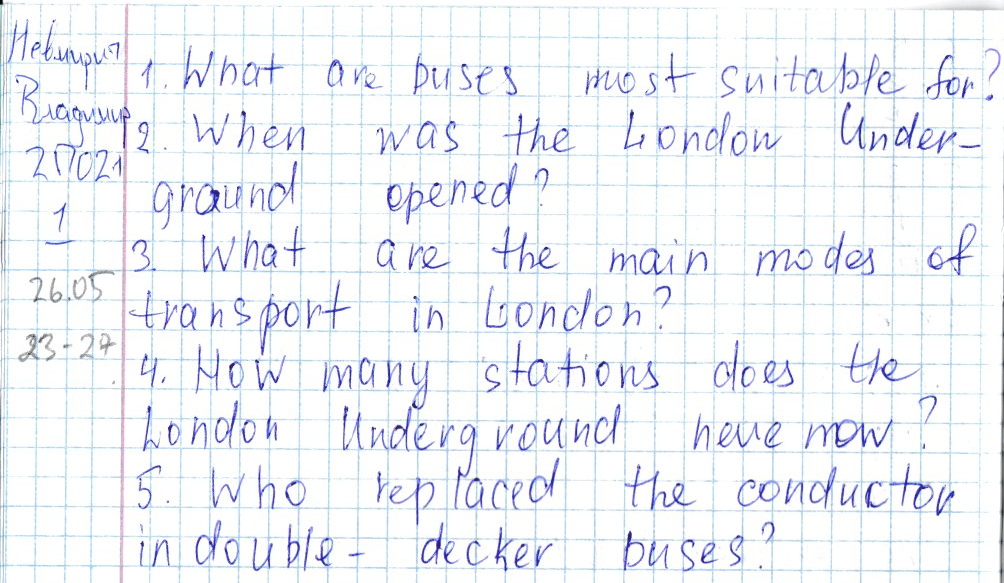 Невмирич
Владимир
2П021
1
26.05
23-27
1. What are buses most suitable for?
2. When was the London Under-
graund opened?
3. What are the main modes of
transport in London?
4. How many stations does the
London Underground heve mow?
5. Who replaced the conductor
in double- decker buses?